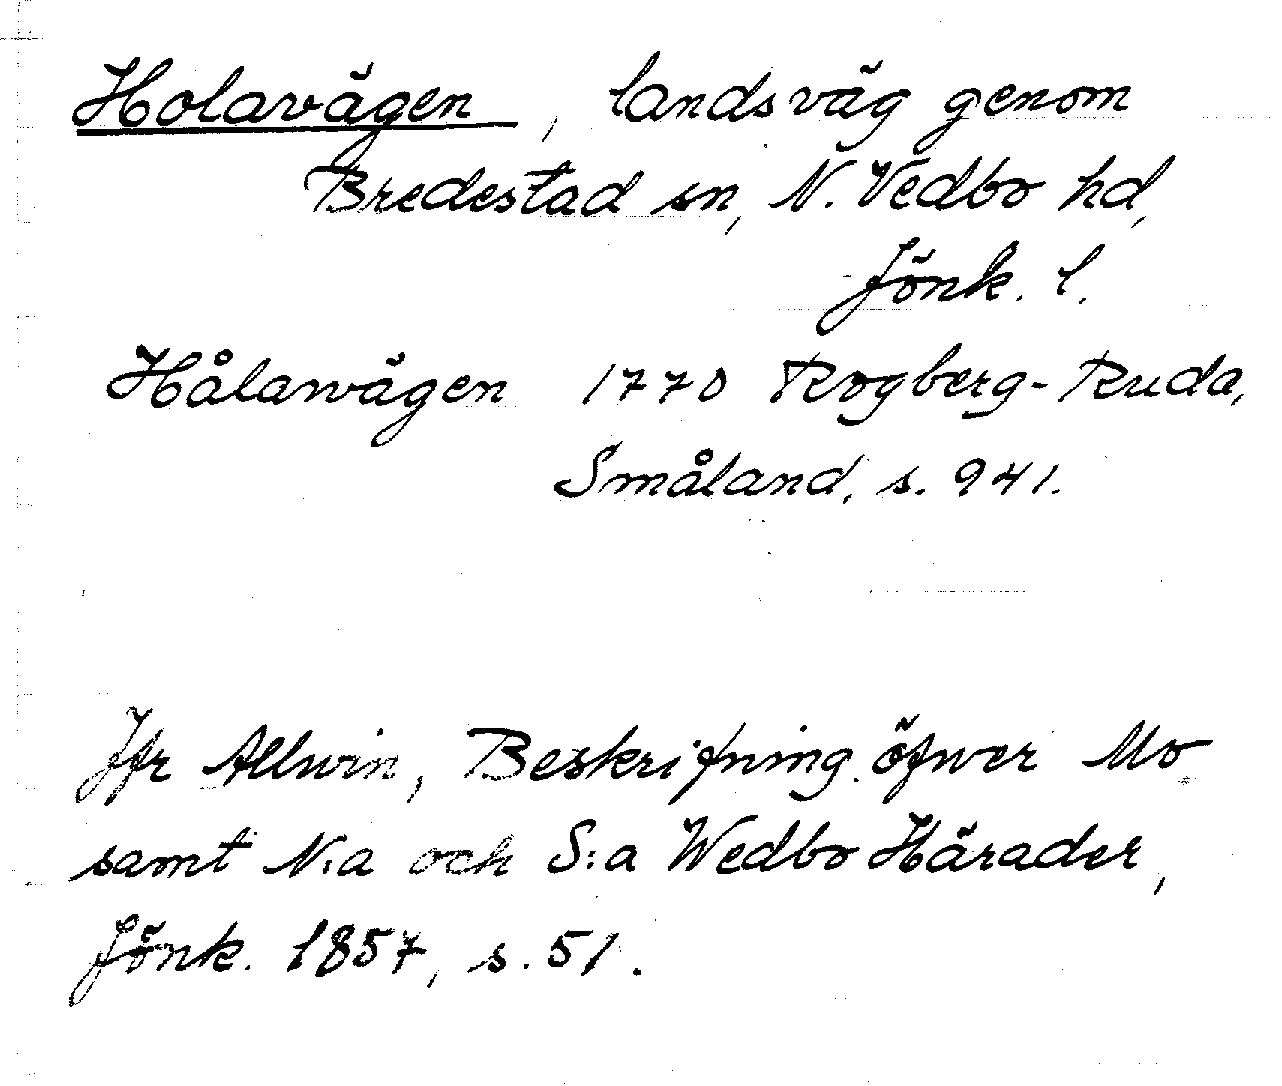 Holavägen, landsväg genom
Bredestad sn, N. Vedbo hd,
Jönk. l.
Hålawägen 1770 Rogberg-Ruda,
Småland, s. 941.
Jfr Allwin, Beskrifning öfwer Mo
samt N:a och S:a Wedbo Härader,
Jönk. 1857, s. 51.